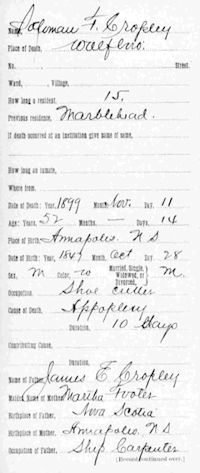 Name, Soloman F. Cropley
Place of Death,
No. Street.
Ward, Village.
How long a resident, 15.
Previous residence, Marblehead.
If death occurred at an institution give name of same,
How long an inmate,
Where from,
Date of Death: Year, 1899 Month, Nov. Day, 11
Age: Years, 52 Months, — Days, 14
Place of Birth, Annapolis. N S
Date of Birth: Year, 1847 Month, Oct Day, 28
Sex, M Color, W Married, Single, Widowed, or Divorced, M.
Occupation, Shoe cutter
Cause of Death, Appoplexy
Duration, 10 Days
Contributing Cause,
Duration,
Name of Father, James E Cropley
Maiden Name of Mother, Martha Foster
Birthplace of Father, Nova Scotia
Birthplace of Mother, Annapolis. N.S
Occupation of Father, Ship Carpenter
[Record continued over.]